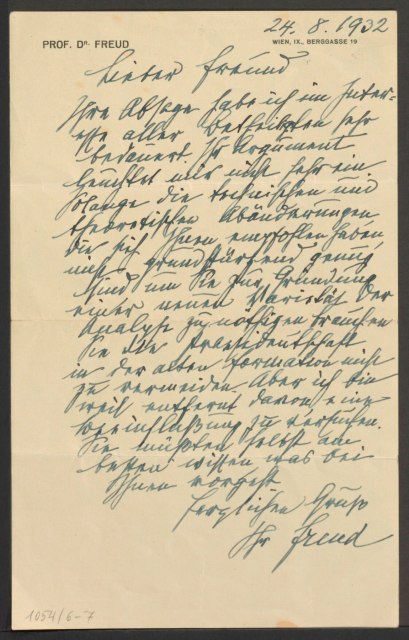 24. 8. 1932
PROF. DR. FREUD
WIEN, IX., BERGGASSE 19
Lieber Freund
Ihre Absage habe ich im Inter-
esse aller Beteiligten sehr
bedauert. Ihr Argument
leuchtet mir nicht sehr ein.
Solange die technischen und
theoretischen Abänderungen,
die sich Ihnen empfohlen haben,
nicht grundstürzend genug
sind um Sie zur Gründung
einer neuen Varietät der
Analyse zu nöthigen brauchen
Sie die Praesidentschaft
in der alten Formation nicht
zu vermeiden. Aber ich bin
weit entfernt davon eine
Beeinflußung zu versuchen.
Sie müßten selbst am
besten wissen was bei
Ihnen vorgeht.
Herzlichen Gruß
Ihr Freud
1054/6-7